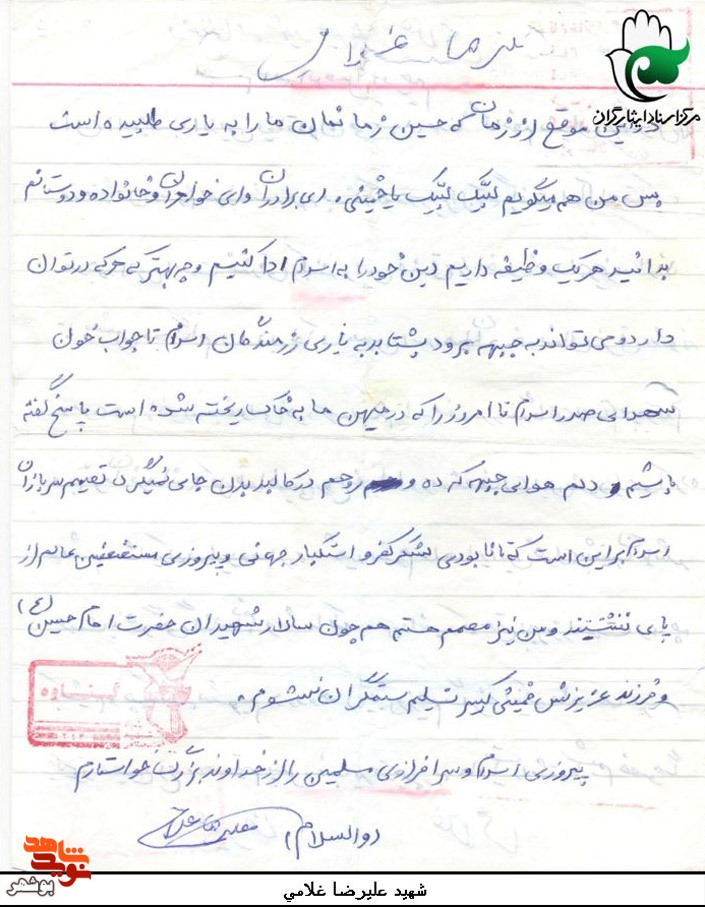 علیرضا غلامی
مرکز اسناد ایثارگران
در این موقع از زمان که حسین زمانمان ما را به یاری طلبیده است
پس من هم میگویم لبیک لبیک یا خمینی. ای برادران وای خواهران و خانواده و دوستانم
بدانید هر یک وظیفه داریم دین خود را به اسلام ادا کنیم و چه بهتر که هر که در توان
دارد و می تواند به جبهه برود بشتابد به یاری رزمندگان اسلام تا جواب خون
شهدای صدر اسلام تا امروز را که در میهن ما به خاک ریخته شده است پاسخ گفته
باشیم و دلم هوای جبهه کرده و روحم در کالبد بدن جای نمیگیرد تصمیم سربازان
اسلام بر این است که تا نابودی لشگر کفر و استکبار جهانی و پیروزی مستضعفین عالم از
پای ننشینند و من نیز مصمم هستم هم چون سالار شهیدان حضرت امام حسین (ع)
و فرزند عزیزش خمینی کبیر تسلیم ستمگران نشوم.
گناوه
پیروزی اسلام و سرافرازی مسلمین را از خداوند بزرگ خواستارم
(والسلام)
علیرضا غلامی
نوید شاهد
بوشهر
شهید علیرضا غلامي